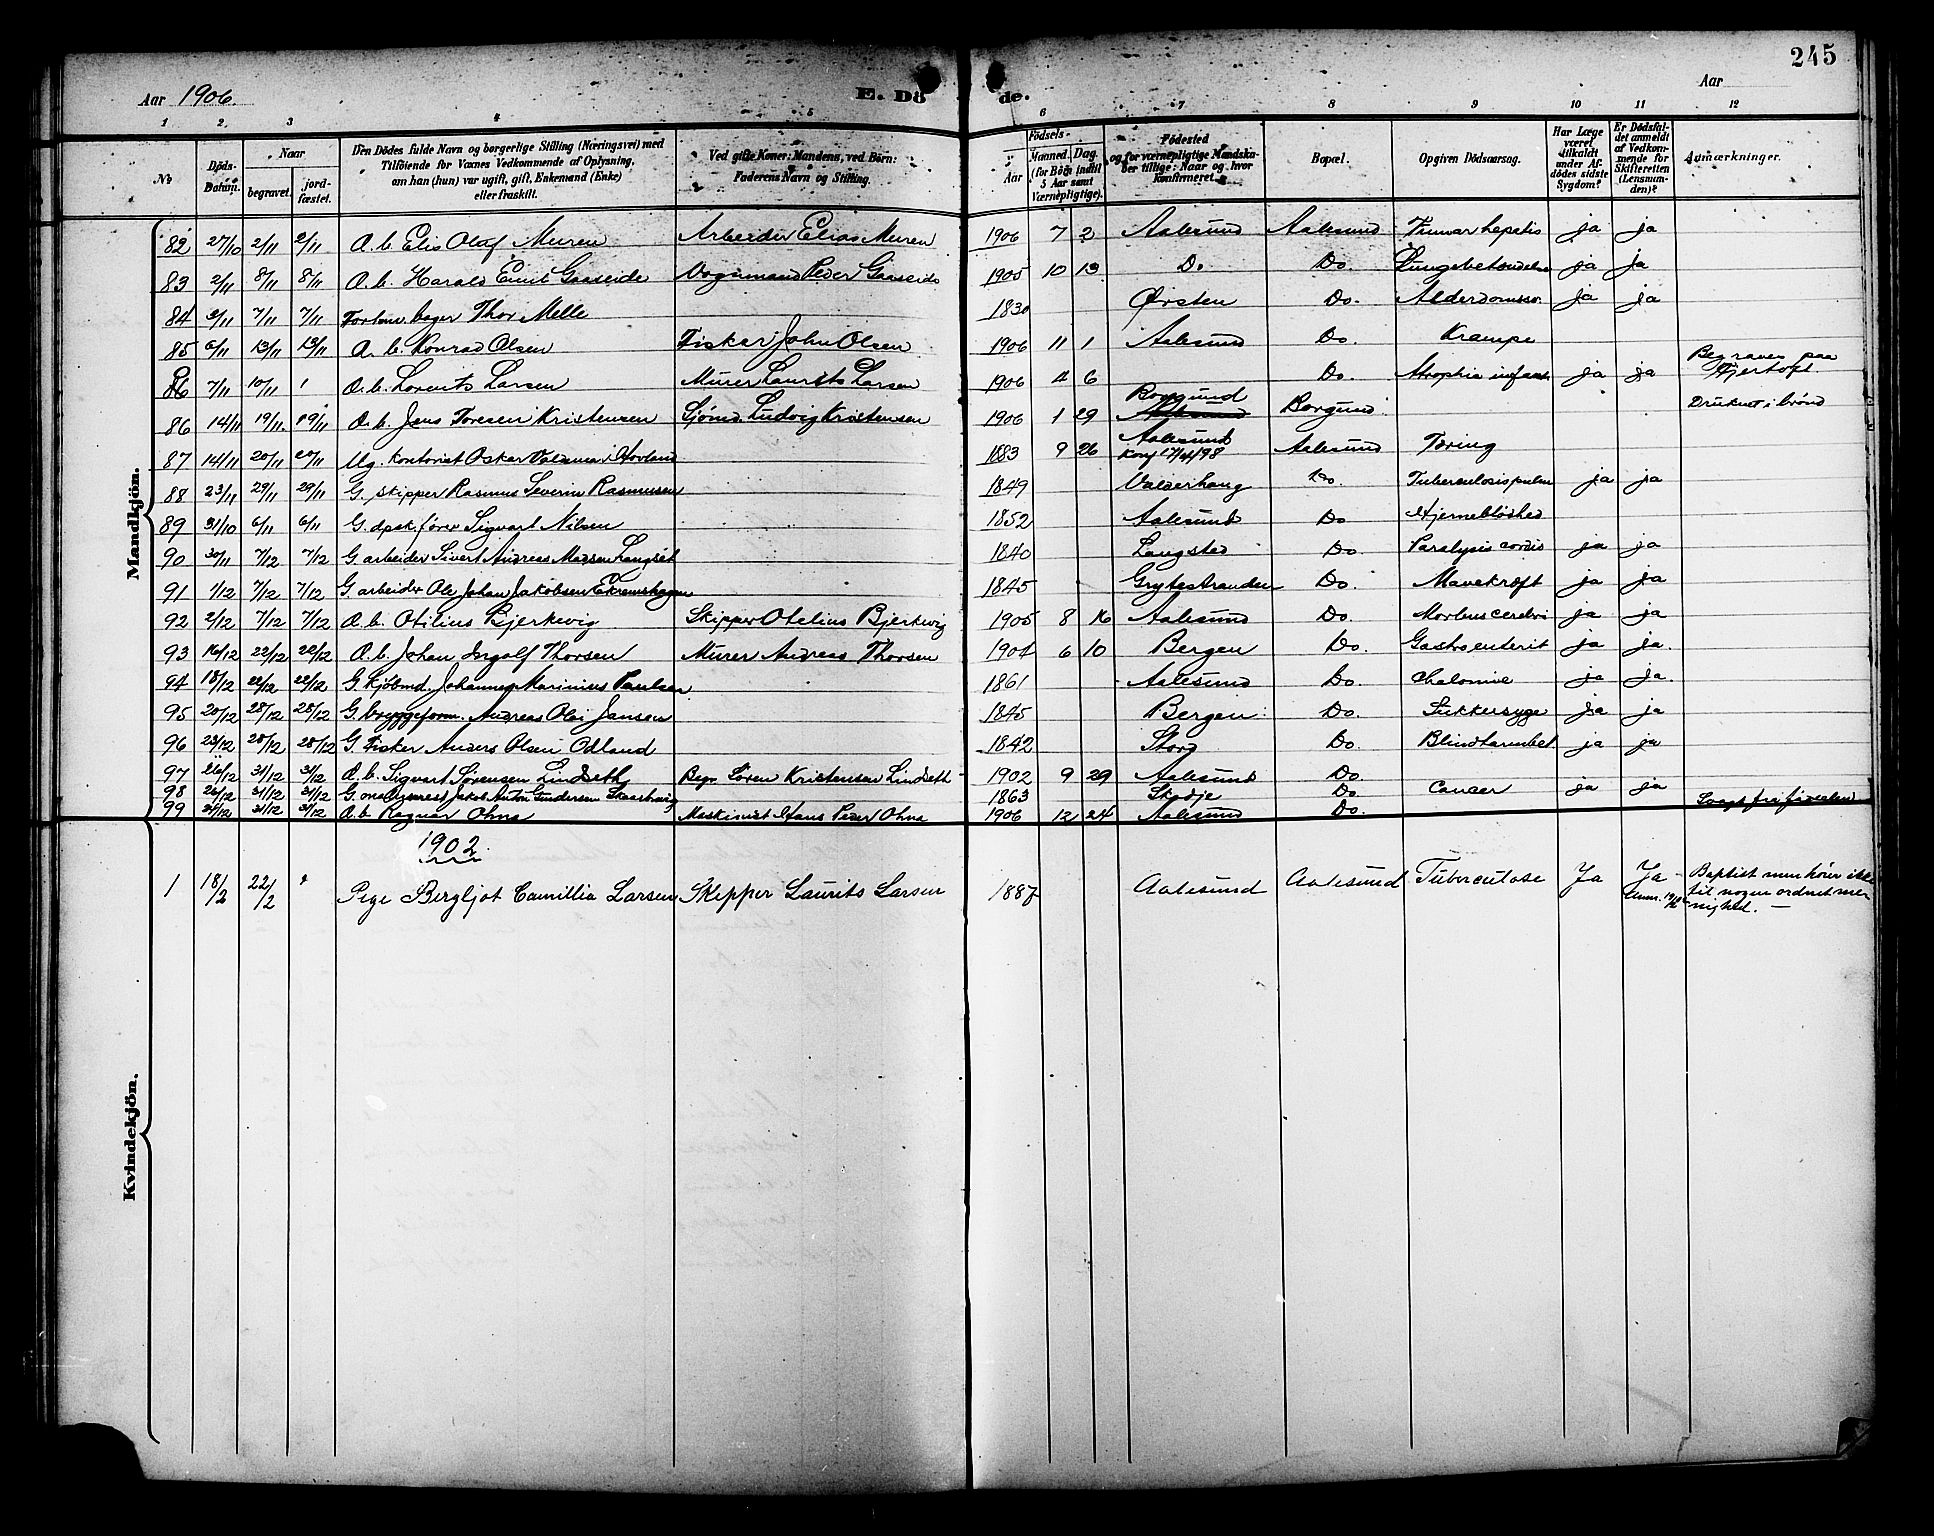 245
Aar 1906.
E. Dö de.
Aar
1 2. 3 4 5 6 7 8 9 10 11 12
№
Döds-Datum.
Naar
begravet.
jord-fæstet.
Den Dödes fulde Navn og borgerlige Stilling (Næringsvei) med
Tilföiende for Vornes Vedkommende af Oplysning,
om han (hun) var ugift, gift, Enkemand (Enke)
eller fraskilt.
Ved gifte Koner: Mandens, ved Börn:
Faderens Navn og Stilling.
Födsels-
Aar
Maaned. Dag
(for Börn indtil
5 Aar samt
Værnepligtige).
Födested
og for værnepligtige Mandska-
ber tillige: Naar og hvor
konfirmeret.
Bopæl.
Opgiven Dödsaarsag.
Har Læge
været
tilkaldt
under Af-
dödes sidste
Sygdom?
Er Dödsfal-
det anmeldt
af Vedkom-
mende for
Skifteretten
(Lensman-
den)?
Anmærkninger.
Mandkjön.
82 27/10 2/11 2/11 A. b. Elis Olaf Muren Arbeider Elias Muren 1906 7 2 Aalesund Aalesund hepatis ja ja
83 2/11 8/11 8/11 A. b. Harald Emil Gaaseide Vognmand Peder Gaaseide 1905 10 13 Do Do. Lungebetændelse ja ja
84 2/11 7/11 7/11 Thor Melle 1830 Ørsten Do. Alderdomssv. ja ja
85 6/11 13/11 13/11 A. b. Konrad Olsen Fisker John Olsen 1906 11 1 Aalesund Do. Krampe
86 7/11 10/11 A. b. Lorents Larsen Murer Laurits Larsen 1906 4 6 Do. Atrophia infant ja ja Begraven paa Hjertoft
86 14/11 19/11. 19/11 A. b. Jens Toresen Kristensen Sjömd. Ludvig Kristensen 1906 1 29 Borgund Aalesund Borgund Druknet i brönd
87 14/11 20/11 20/11 Ug. kontorist Oskar Valdemar Hovland 1883 9 26 Aalesund Konf 17/4/98 Aalesund Tæring
88 23/11 29/11 29/11 G. skipper Rasmus Severin Rasmussen 1849 Valderhaug Do. Tuberculosis pulm ja ja
89 31/10 6/11 6/11 G. dpsk.förer Sigvart Nilsen 1852 Aalesund Do Hjerneblödhed
90 30/11 7/12 7/12 G. arbeider Sivert Andreas Madsen Langset 1840 Langsted Do. Paralysis cordis ja ja
91 1/12 7/12 7/12 G. arbeider Ole Johan Jakobsen Ekremshagen 1845 Grytestranden Do. Mavekræft ja ja
92 2/12 7/12 7/12 A. b. Otilius Bjerkevig Skipper Otelius Bjerkevig 1905 8 16 Aalesund Do. Morbus cerebri ja ja
93 16/12 22/12 22/12 A. b. Johan Ingolf Thorsen Murer Andreas Thorsen 1904 6 10 Bergen Do. Gastroenterit ja ja.
94 18/12 22/12 22/12 G. Kjöbmd. Johannes Marinius Paulsen 1861 Aalesund Do. ja ja.
95 20/12 28/12 28/12 G. bryggeform. Andreas Olai Jansen 1845 Bergen Do. Sukkersyge ja ja
96 23/12 28/12 28/12 G. Fisker Anders Olsen Odland 1842 Stord Do. Blindtarmbet. ja ja
97 26/12 31/12 31/12 A. b. Sigvart Sörensen Lindseth Sören Kristensen Lindseth 1902 9 29 Aalesund Do.
98 26/12 31/12 31/12 G. Jakob Anton Gundersen 1863 Skodje Do. Cancer ja ja
99 31/12 31/12 A. b. Ragnar Ohna Maskinist Hans Peder Ohna 1906 12 24 Aalesund Do.
Kvindekjön.
1902.
1 18/2 22/2 Pige Bergljot Camillia Larsen Skipper Laurits Larsen 1887 Aalesund Aalesund Tuberculose Ja Ja Baptist men hörer ikke
til nogen ordnet me-
nighed. —